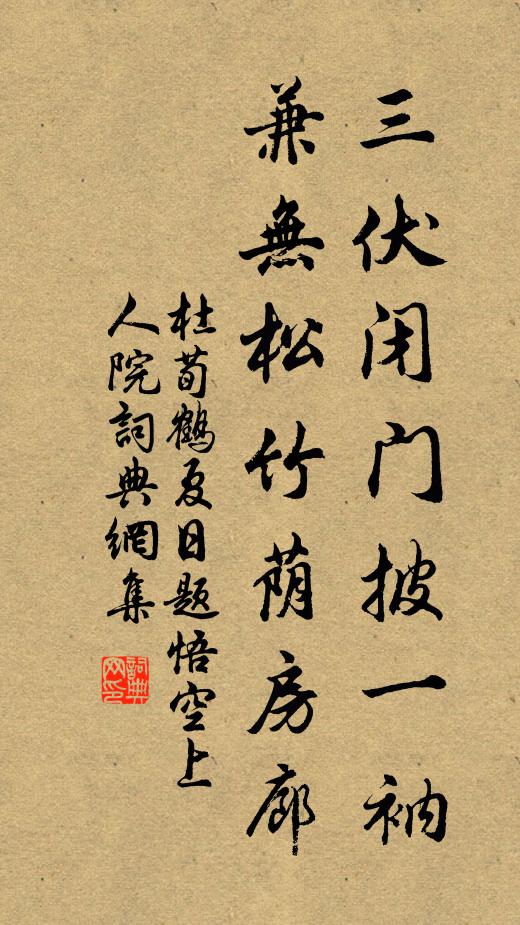 三伏闭门披一衲
兼無松竹荫房廊
杜荀鶴夏日题悟空上
人院詞典網集
詞典
网印